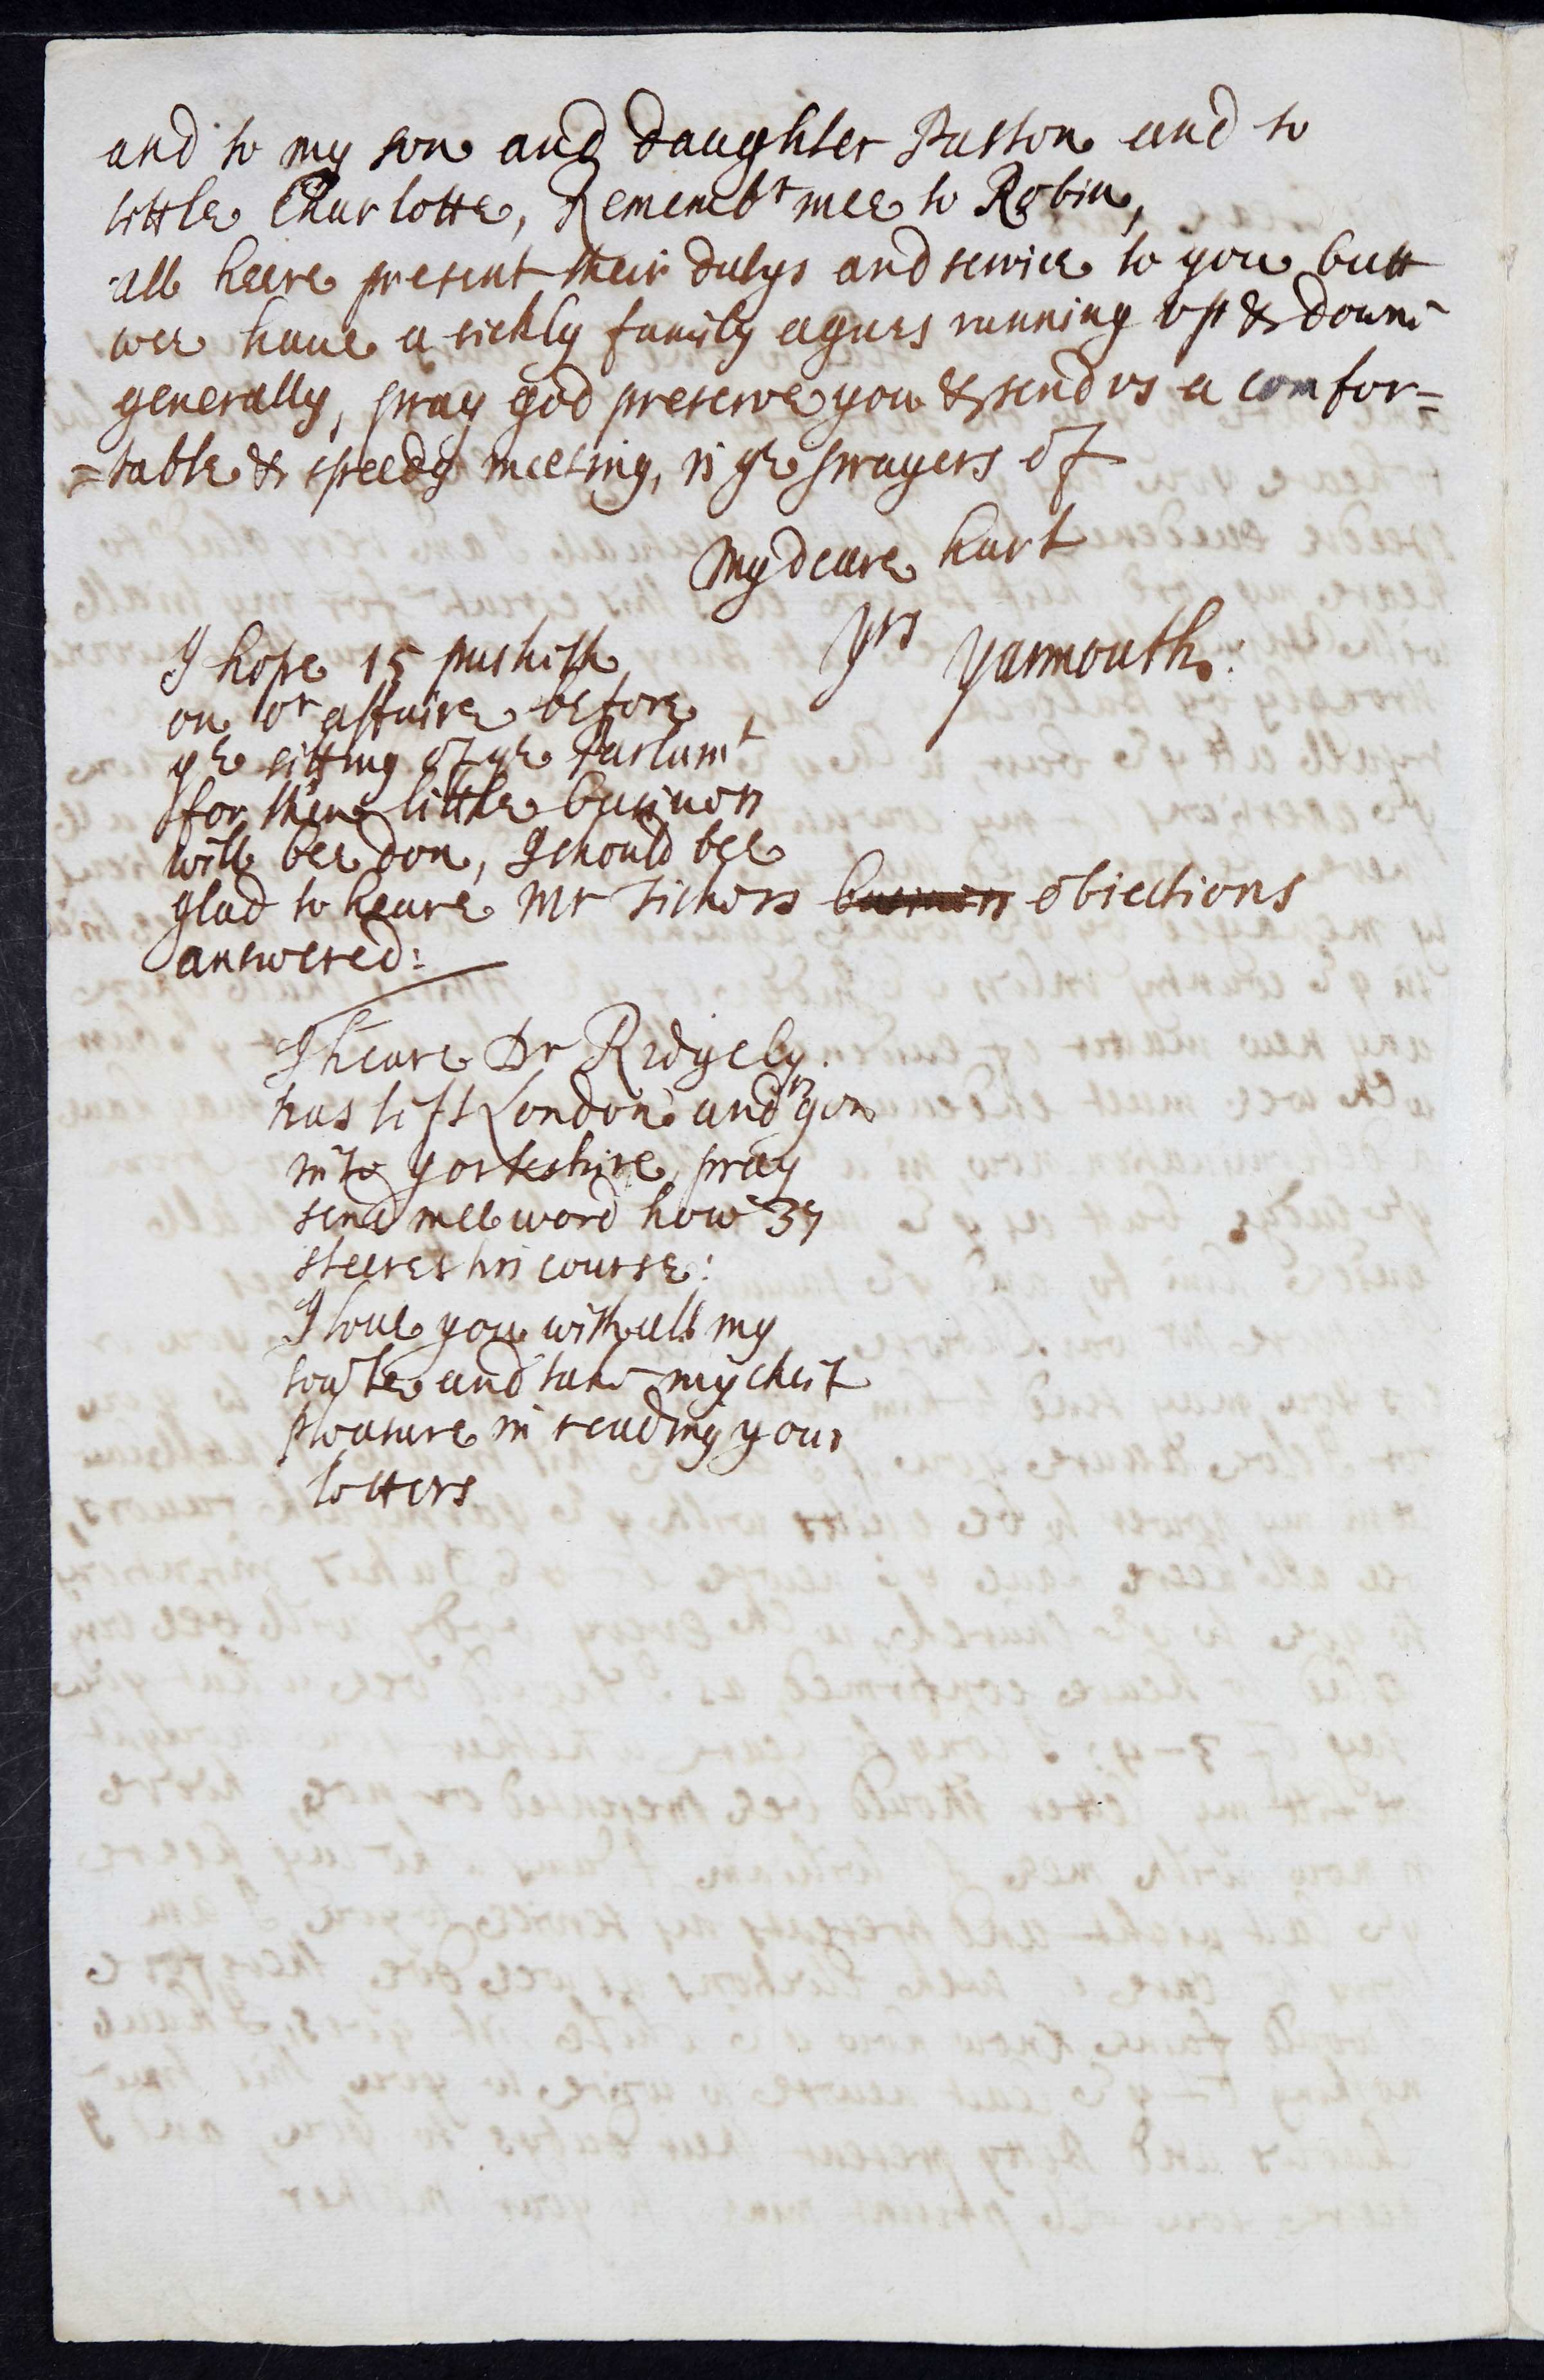 and to my son and daughter Paston and to
little Charlotte, Rememb<sup>r</sup> mee to Robin,
all heere present their dutys and service to you butt
wee haue a sickly family agues running vp & downe
generally, pray god preserve you & send vs a comfor=
=table & speedy meeting, is ye prayers of
my deare hart
yrs Yarmouth:
I hope 15 pusheth
on o<sup>r</sup> affaire before
ye sitting of ye Parlam<sup>t</sup>
for then little businesse
will bee don, I should bee
glad to heare Mr obiections
answered:
I heare Dr Ridgely
has left London and is gon
into Yorkeshire, pray
send mee word how 37
steeres his course:
I loue you with all my
soule and take my cheif
pleasure in reading your
letters